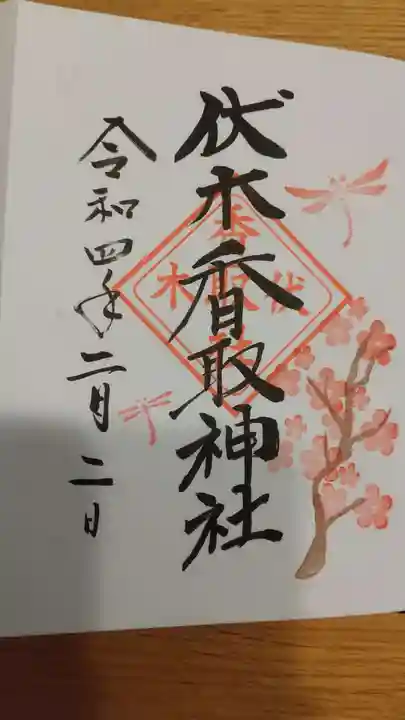 伏木香取神社
令和四年二月二日
香
木取伏